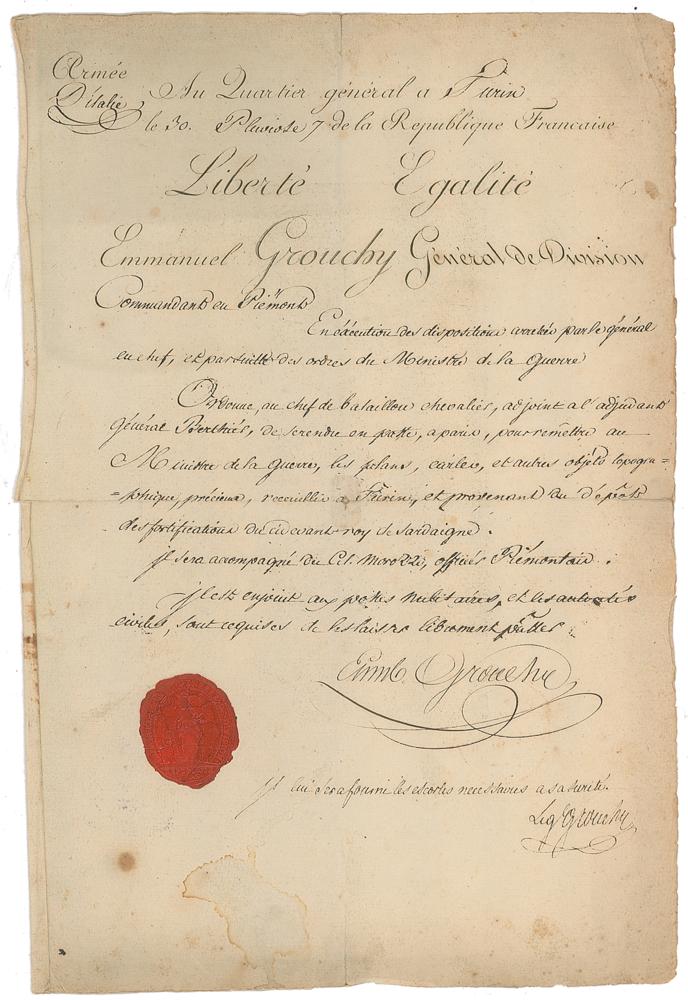 Armée
D'italie
Au Quartier général a Turin
le 30. Pluviose 7 de la Republique Francaise
Liberté Egalité
Emmanuel Grouchy Général de Division
Commandant en Piémont
En éxécution des dispositions arretées par le général
en chef, et par suitte des ordres du Ministre de la Guerre
Ordonne, au chef de bataillon chevalier, adjoint a l'adjudant
général Berthier, de se rendre en poste, a paris, pour remettre au
Ministre de la guerre, les plans, cartes, et autres objets topogra=
=phique, précieux, receuillis a Turin, et provenant du dépôt
des fortifications du cidevant roy de Sardaigne.
il sera accompagné du Cit. Morozzo, officier Piémontais.
il est enjoint aux postes militaires, et les autorités
civiles, sont requises de les laisser librement passer.
Emm. Grouchy
il lui sera fourni les escortes necessaires a sa sureté.
Grouchy